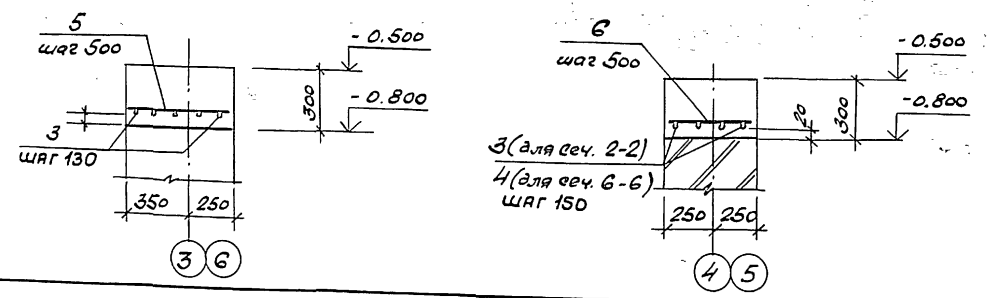 5
шаг 500
- 0.500
- 0.800
300
3
шаг 130
350
250
3
6
6
шаг 500
- 0.500
- 0.800
20
300
3 (для сеч. 2-2)
4 (для сеч. 6-6)
шаг 150
250
250
4
5